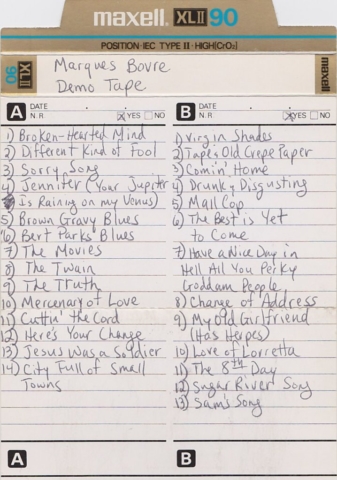 maxell XLII 90
POSITION·IEC TYPE II·HIGH(CrO2)
XLII 90
Marques Bovre
Demo Tape
maxell
A DATE
N.R YES NO
1) Broken-Hearted Mind
2) Different Kind of Fool
3) Sorry Song
4) Jennifer (Your Jupiter
Is Raining on my Venus)
5) Brown Gravy Blues
6) Bert Parks Blues
7) The Movies
8) The Twain
9) The Truth
10) Mercenary of Love
11) Cuttin' the Cord
12) Here's Your Change
13) Jesus Was a Soldier
14) City Full of Small
Towns
A
B DATE
N.R YES NO
1) Virgin Shades
2) Tape & Old Crepe Paper
3) Comin' Home
4) Drunk & Disgusting
5) Mall Cop
6) The Best is Yet
to Come
7) Have a Nice Day in
Hell All You Perky
Goddam People
8) Change of Address
9) My Old Girlfriend
(Has Herpes)
10) Love of Lorretta
11) The 8th Day
12) Sugar River Song
13) Sam's Song
B